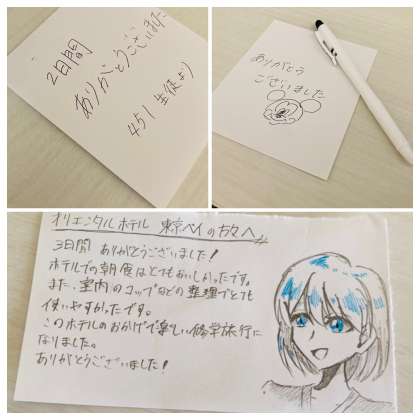 2日間
ありがとうございました
451 生徒より
ありがとう
ございました
オリエンタルホテル 東京ベイの方々へ
3日間 ありがとうございました!
ホテルでの朝食はとてもおいしかったです。
また、室内のコップなどの整理でとても
使いやすかったです。
このホテルのおかげで楽しい修学旅行に
なりました。
ありがとうございました!